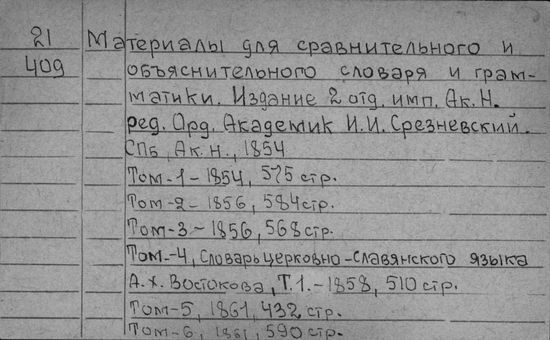 21
409
Материалы для сравнительного и
объяснительного словаря и грам-
матики. Издание 2 отд. имп. Ак. Н.
ред. Орд. Академик И.И. Срезневский.
СПб, Ак. Н., 1854
Том-1-1854, 575 стр.
Том-2-1856, 584 стр.
Том-3-1856, 568 стр.
Том-4, Словарь церковно-славянского языка
А.Х. Востокова, Т.1.-1858, 510 стр.
Том-5, 1861, 432 стр.
Том-6, 1861, 590 стр.